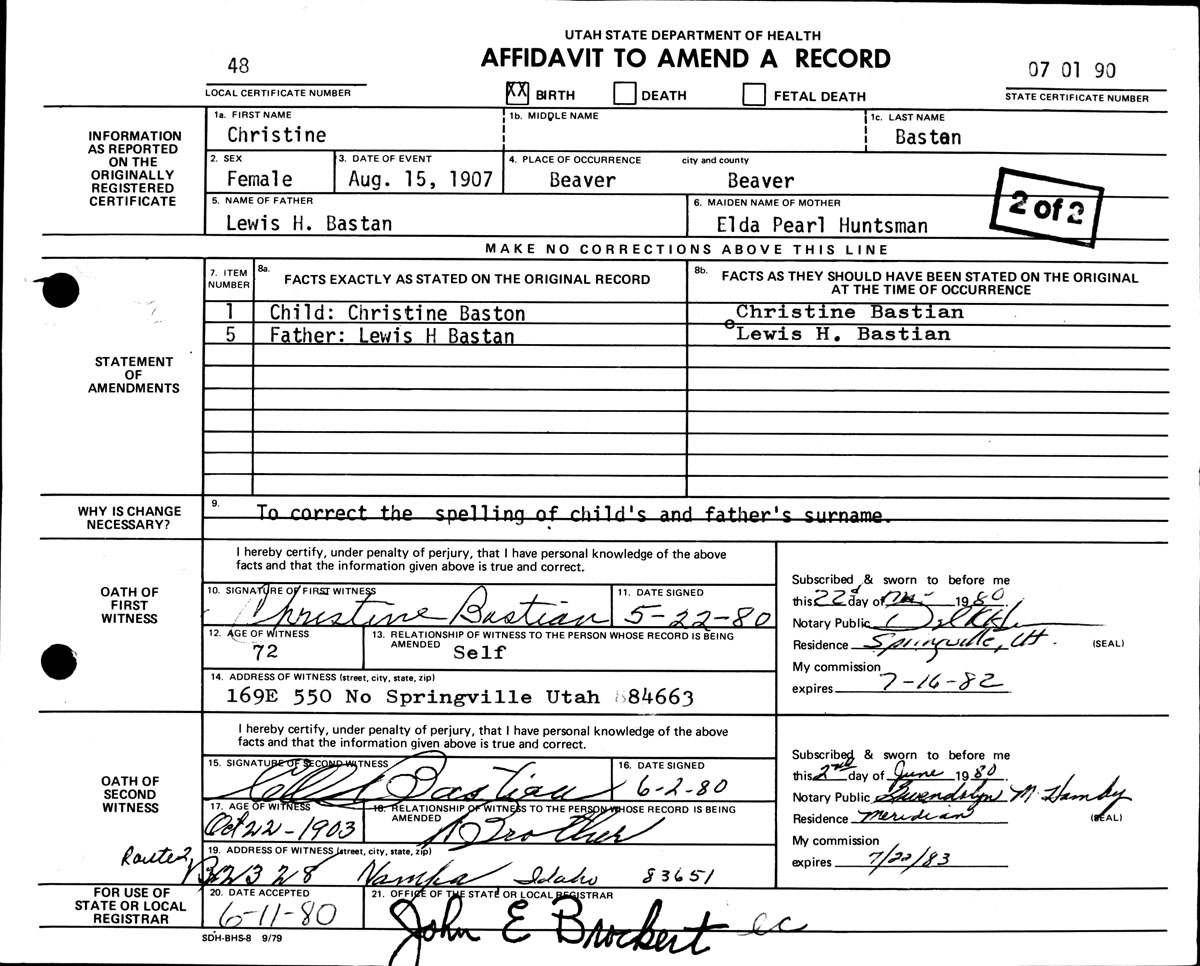 UTAH STATE DEPARTMENT OF HEALTH
AFFIDAVIT TO AMEND A RECORD
48
LOCAL CERTIFICATE NUMBER
XX BIRTH DEATH FETAL DEATH
07 01 90
STATE CERTIFICATE NUMBER
INFORMATION
AS REPORTED
ON THE
ORIGINALLY
REGISTERED
CERTIFICATE
1a. FIRST NAME 1b. MIDDLE NAME 1c. LAST NAME
Christine Baston
2. SEX 3. DATE OF EVENT 4. PLACE OF OCCURRENCE city and county
Female Aug. 15, 1907 Beaver Beaver
5. NAME OF FATHER 6. MAIDEN NAME OF MOTHER
Lewis H. Bastan Elda Pearl Huntsman
2 of 2
MAKE NO CORRECTIONS ABOVE THIS LINE
STATEMENT
OF
AMENDMENTS
7. ITEM
NUMBER
8a. FACTS EXACTLY AS STATED ON THE ORIGINAL RECORD
8b. FACTS AS THEY SHOULD HAVE BEEN STATED ON THE ORIGINAL
AT THE TIME OF OCCURRENCE
1 Child: Christine Baston Christine Bastian
5 Father: Lewis H Bastan Lewis H. Bastian
WHY IS CHANGE
NECESSARY?
9. To correct the spelling of child's and father's surname.
OATH OF
FIRST
WITNESS
I hereby certify, under penalty of perjury, that I have personal knowledge of the above
facts and that the information given above is true and correct.
10. SIGNATURE OF FIRST WITNESS 11. DATE SIGNED
Christine Bastian 5-22-80
12. AGE OF WITNESS 13. RELATIONSHIP OF WITNESS TO THE PERSON WHOSE RECORD IS BEING
AMENDED
72 Self
14. ADDRESS OF WITNESS (street, city, state, zip)
169E 550 No Springville Utah 84663
Subscribed & sworn to before me
this 22d day of 1980
Notary Public
Residence Springville, Ut. (SEAL)
My commission
expires 7-16-82
OATH OF
SECOND
WITNESS
I hereby certify, under penalty of perjury, that I have personal knowledge of the above
facts and that the information given above is true and correct.
15. SIGNATURE OF SECOND WITNESS 16. DATE SIGNED
Bastian 6-2-80
17. AGE OF WITNESS 18. RELATIONSHIP OF WITNESS TO THE PERSON WHOSE RECORD IS BEING
AMENDED
Oct 22-1903 Brother
19. ADDRESS OF WITNESS (street, city, state, zip)
Route 2 Nampa Idaho 83651
Subscribed & sworn to before me
this 2nd day of June 1980
Notary Public Gwendolyn M. Hamby
Residence Meridian (SEAL)
My commission
expires 7/22/83
FOR USE OF
STATE OR LOCAL
REGISTRAR
20. DATE ACCEPTED 21. OFFICE OF THE STATE OR LOCAL REGISTRAR
6-11-80 John E Brockert
SDH-BHS-8 9/79